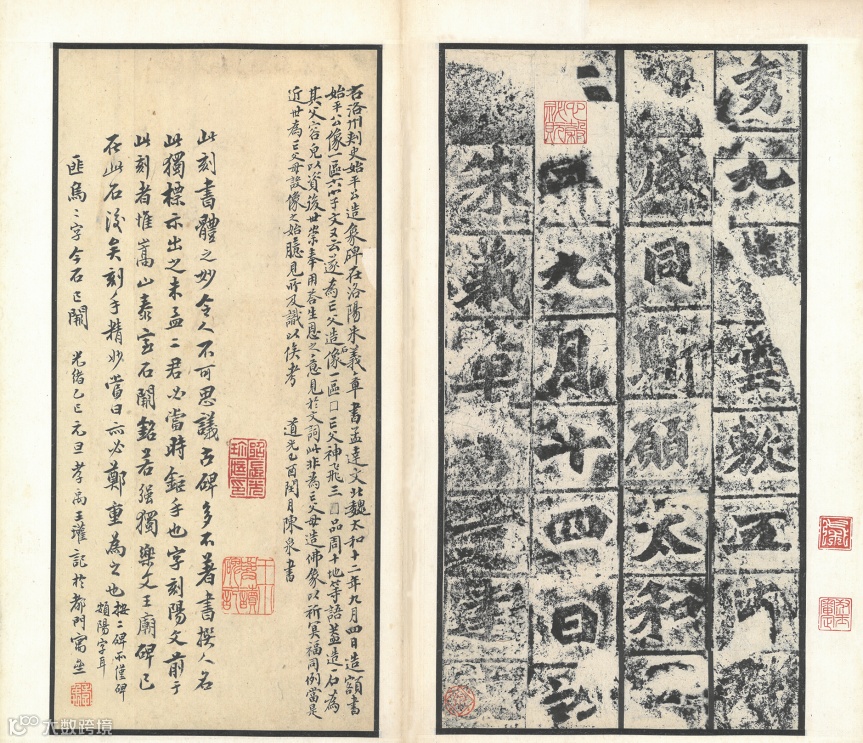 秀九雲敷五
咸同斯願太和
二年九月十四日訖
朱義章
右洛州刺史始平公造象碑在洛陽朱義章書孟達文北魏太和十二年九月四日造額書
始平公像一區六小字文又云遂為亡父造石像一區□亡父神飛三□品周十地等語蓋造一石為
其父容皃以資後世崇奉用答生恩之意見於文詞此非為亡父母造佛象以祈冥福同例當是
近世為亡父母設像之始臆見所及識以俟考 道光乙酉閏月陳泉書
此刻書體之妙令人不可思議古碑多不著書撰人名
此獨標示出之朱孟二君必當時錚手也字刻陽文前于
此刻者惟嵩山泰室石闕銘若強獨樂文王廟碑已
在此石後矣刻手精妙當日亦必鄭重為之也
按二碑不僅碑
額陽字耳
匪烏二字今石已闕 光緒乙巳元旦孝禹王瓘記於都門寓齋
大数跨境